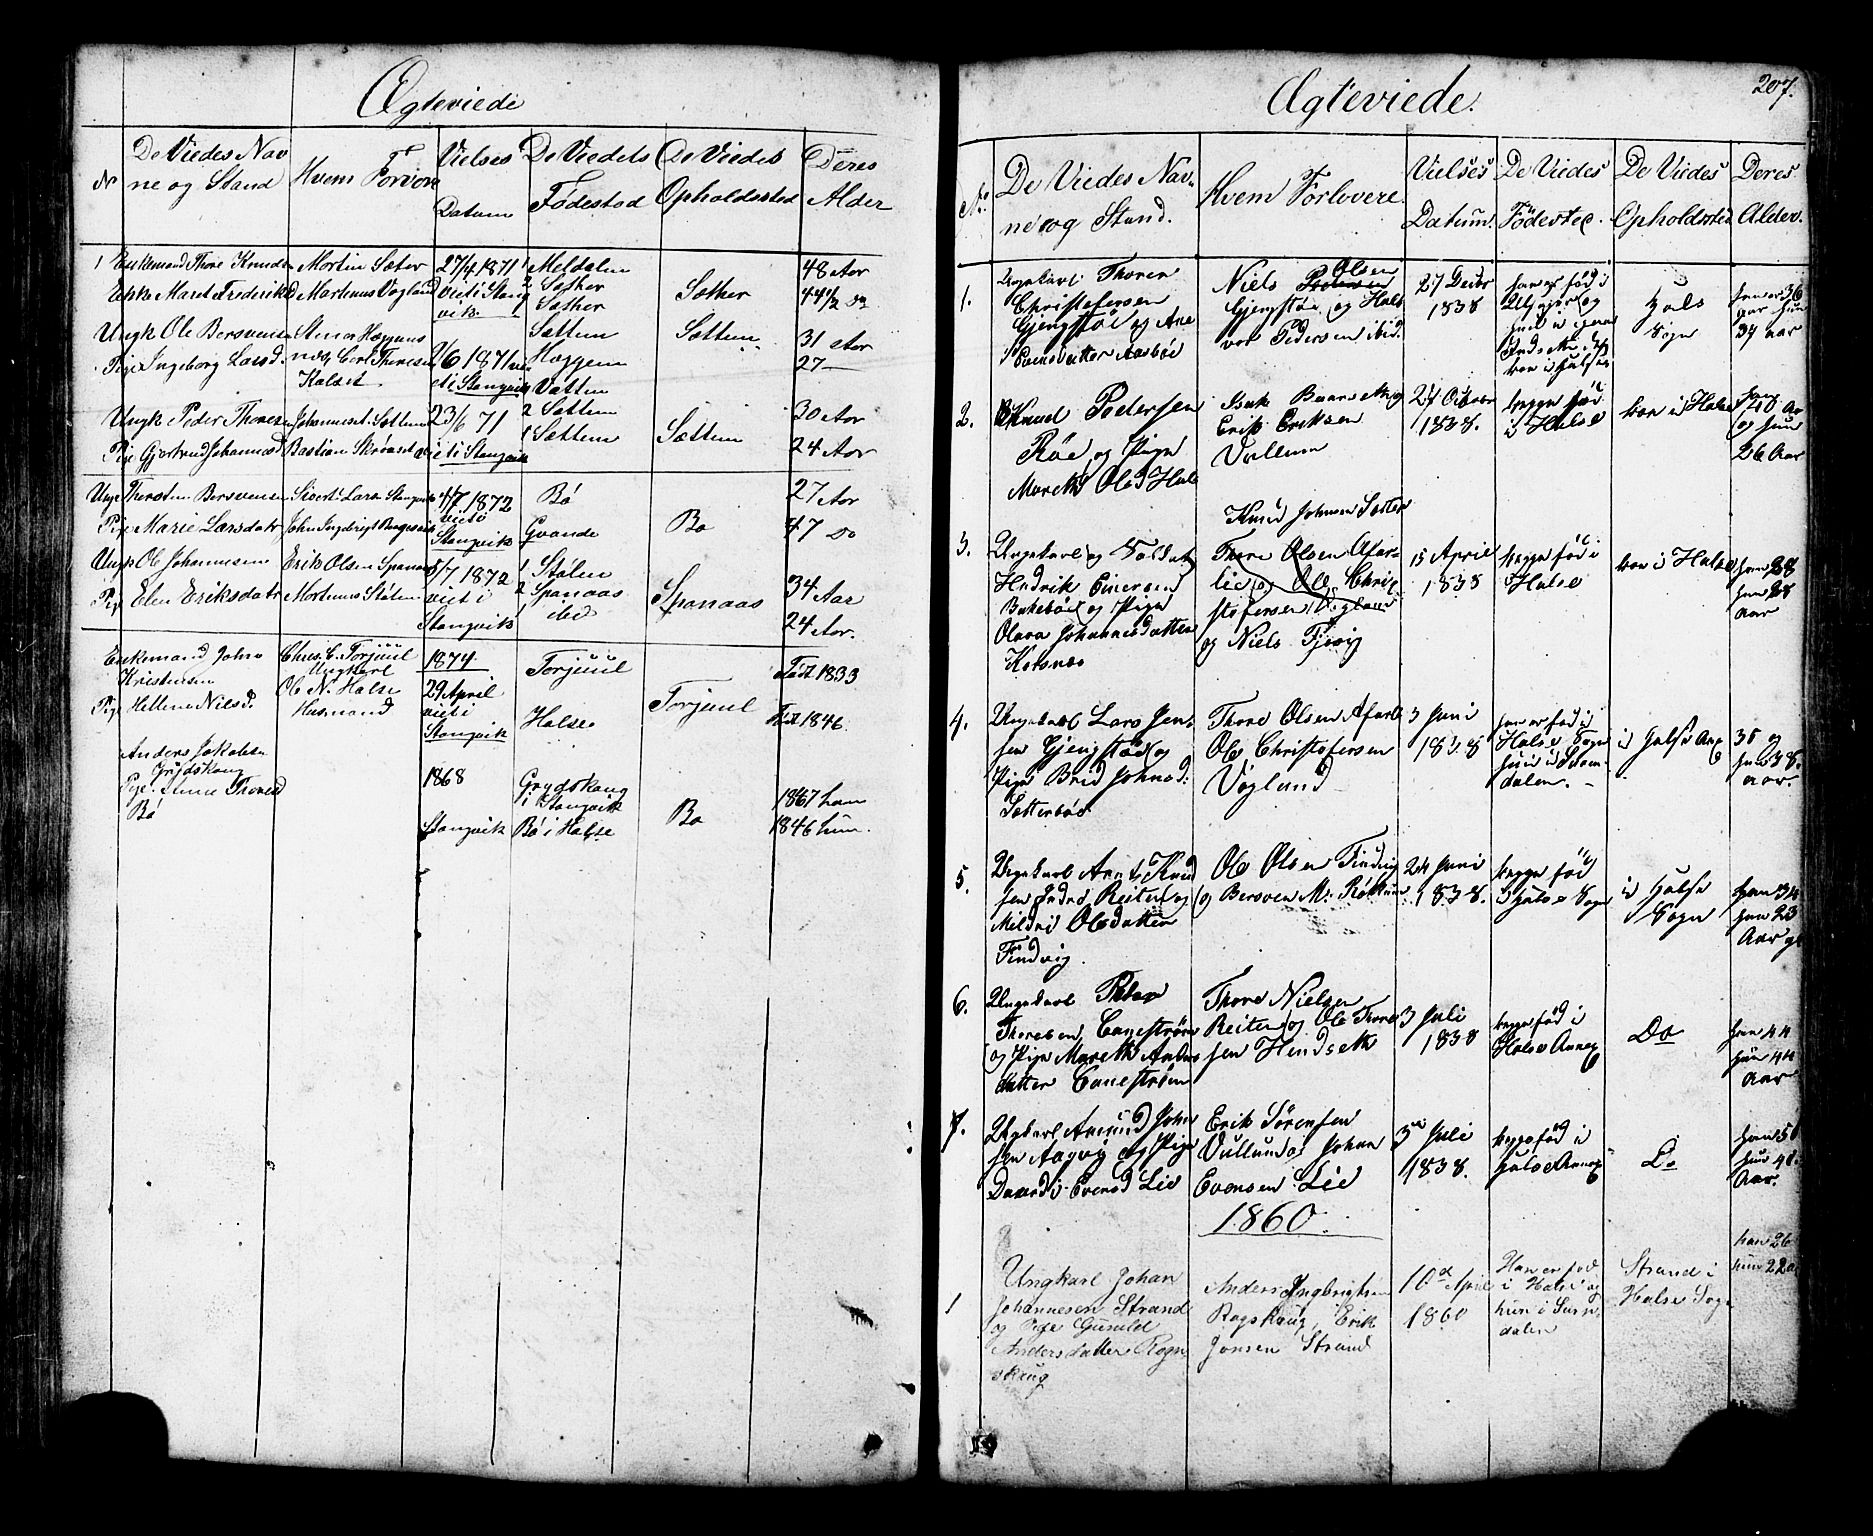 Ægteviede
No
De Viedes Nav
ne og Stand
Hvem Forlov
Vielses
Datum
De Viedets
Fødestod
De Viedes
Opholdssted
Deres
Alder
1 Enkemand Thore Knuds
Enke Maret Frederiksd
Morten Sæter
Martinus Vogland
27/4 1871
viet i Stang
vik
1 Meldalen
2 Sæther
Sæther
Sæther
48 Aar
44 1/2 do
Ungk Ole Bersvens
Pige Ingeborg Larsd.
Halset
1871
et i Stangvik
Sættem
Hoggem
Vatten
Sættem
31 Aar
27 —
Ungk Peder Thoresen
Pige Gjertrud Johannesd
Johannes Sættem
Bastian
23/6 71
et i Stangvik
2 Sættem
1 Sættem
Sættem
30 Aar
24 Aar
Ungk Thorsten Bersvensen
Pige Marie Larsdatr
Sivert Larsen Stangvik
4/7 1872
viet i
Stangvik
Bö
Grande
Bø
27 Aar
47 do
Ungk Ole Johannesen
Pige Elen Eriksdatr
Erik Olsen Spanaas
Martinus Stölen
5/7 1872
viet i
Stangvik
1 Stölen
2 Spanaas
ibd
Spanaas
34 Aar
24 Aar.
Enkemand John
Kristensen
Pige Hellena Nilsd.
Chres. C. Torjuul
Ungkarl
Ole N. Halse
Husmand
1874
29 April
viet i
Stangvik
Torjuul
Halse
Torjuul
Født 1833
Født 1846
Anders Jakobsen
Grydskoug
Pige Thoresd
Bö
1868
Stangvik
Grydskoug
i Stangvik
Bö i Halse
Bø
1867 han
1846 hun.
Ægteviede.
207.
No.
De Viedes Nav-
ne og Stand.
Hvem Forlovere.
Vielses
Datum.
De Viedes
Fødested.
De Viedes
Opholdssted
Deres
Alder.
1.
Ungkarl Thorer
Christofersen
Gjengstøe og Ane
Evensdatter Aasbøe
Niels Olsen
Gjengstøe og Hal
vor Pedersen ibid.
27 Decbr
1838
han er fød i
Hals
Sogn
han er 36
aar hun
34 aar
2.
Knud Pedersen
Røe og Pige
Mareth Olsd Hals
Isak
Erik Eriksen
Vullum
1838.
begge fød
i Halse
boe i Halse
og hun
26 Aar
3.
Ungekarl og Soldat
Hendrik Einersen
Bakebøe og Pige
Olava Johannesdatter
Korsnæs
Knud Johnsen Sæter
Thore Olsen Afar-
lie og Ole Chri-
stofersen Vogland
og Niels
15 April
1838
begge fød i
Halse
boe i Halse
han 28
hun 28
Aar
4.
Ungekarl Lars Jen-
sen Gjengstøe og
Pige Brid Johnsd:
Sætterbøe
Thore Olsen Afarli
Ole Christofersen
Vogland
3 Juni
1838
han er fød i
Halse Sogn
hun i Surn-
dalen. -
i Halse Anx
35 og
hun 38.
Aar.
5.
Ungekarl Arnt Knud
sen Indre Reiten og
Mildri Olsdatter
Findvig.
Ole Olsen Findvig
og Bersven M. Røkkum
24 Juni
1838.
begge fød
i Halse Sogn
i Halse
Sogn
han 34
hun 23
Aar gl
6.
Ungekarl Peder
Thoresen Canestrøm
og Pige Mareth Anders
datter Canestrøm
Thore Nielsen
Reiten og Ole Thore
sen Hendseth
3 Juli
1838
begge fød i
Halse Annex
Do
han 44
hun 44
Aar
7.
Ungkarl Amund John
sen Aagvig og Pige
Evensd Lie
Erik Sørensen
Vullum og Johan
Evensen Lie
3de Juli
1838.
begge fød i
Halse Annex
Do
han 50
hun 40.
Aar.
1860.
1
Ungkarl Johan
Johannesen Strand
og Pige Gunild
Andersdatter Rogn
skoug
Anders Ingbrigtsen
Rogskoug, Erik
Jonsen Strand
10d April
1860
Han er fød
i Halse og
hun i Surn-
dalen
Strand i
Halse Sogn
han 26
hun 22 a